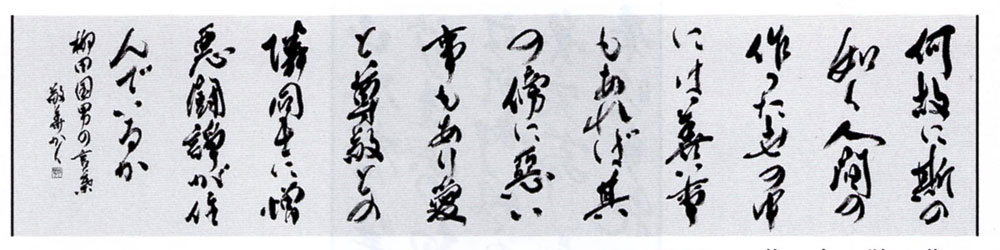 何故に斯の
如く人間の
作つた世の中
には善い事
もあれば其
の傍に惡い
事もあり愛
と尊敬との
隣同士に憎
悪闘諍が住
んでいるか
柳田国男の言葉